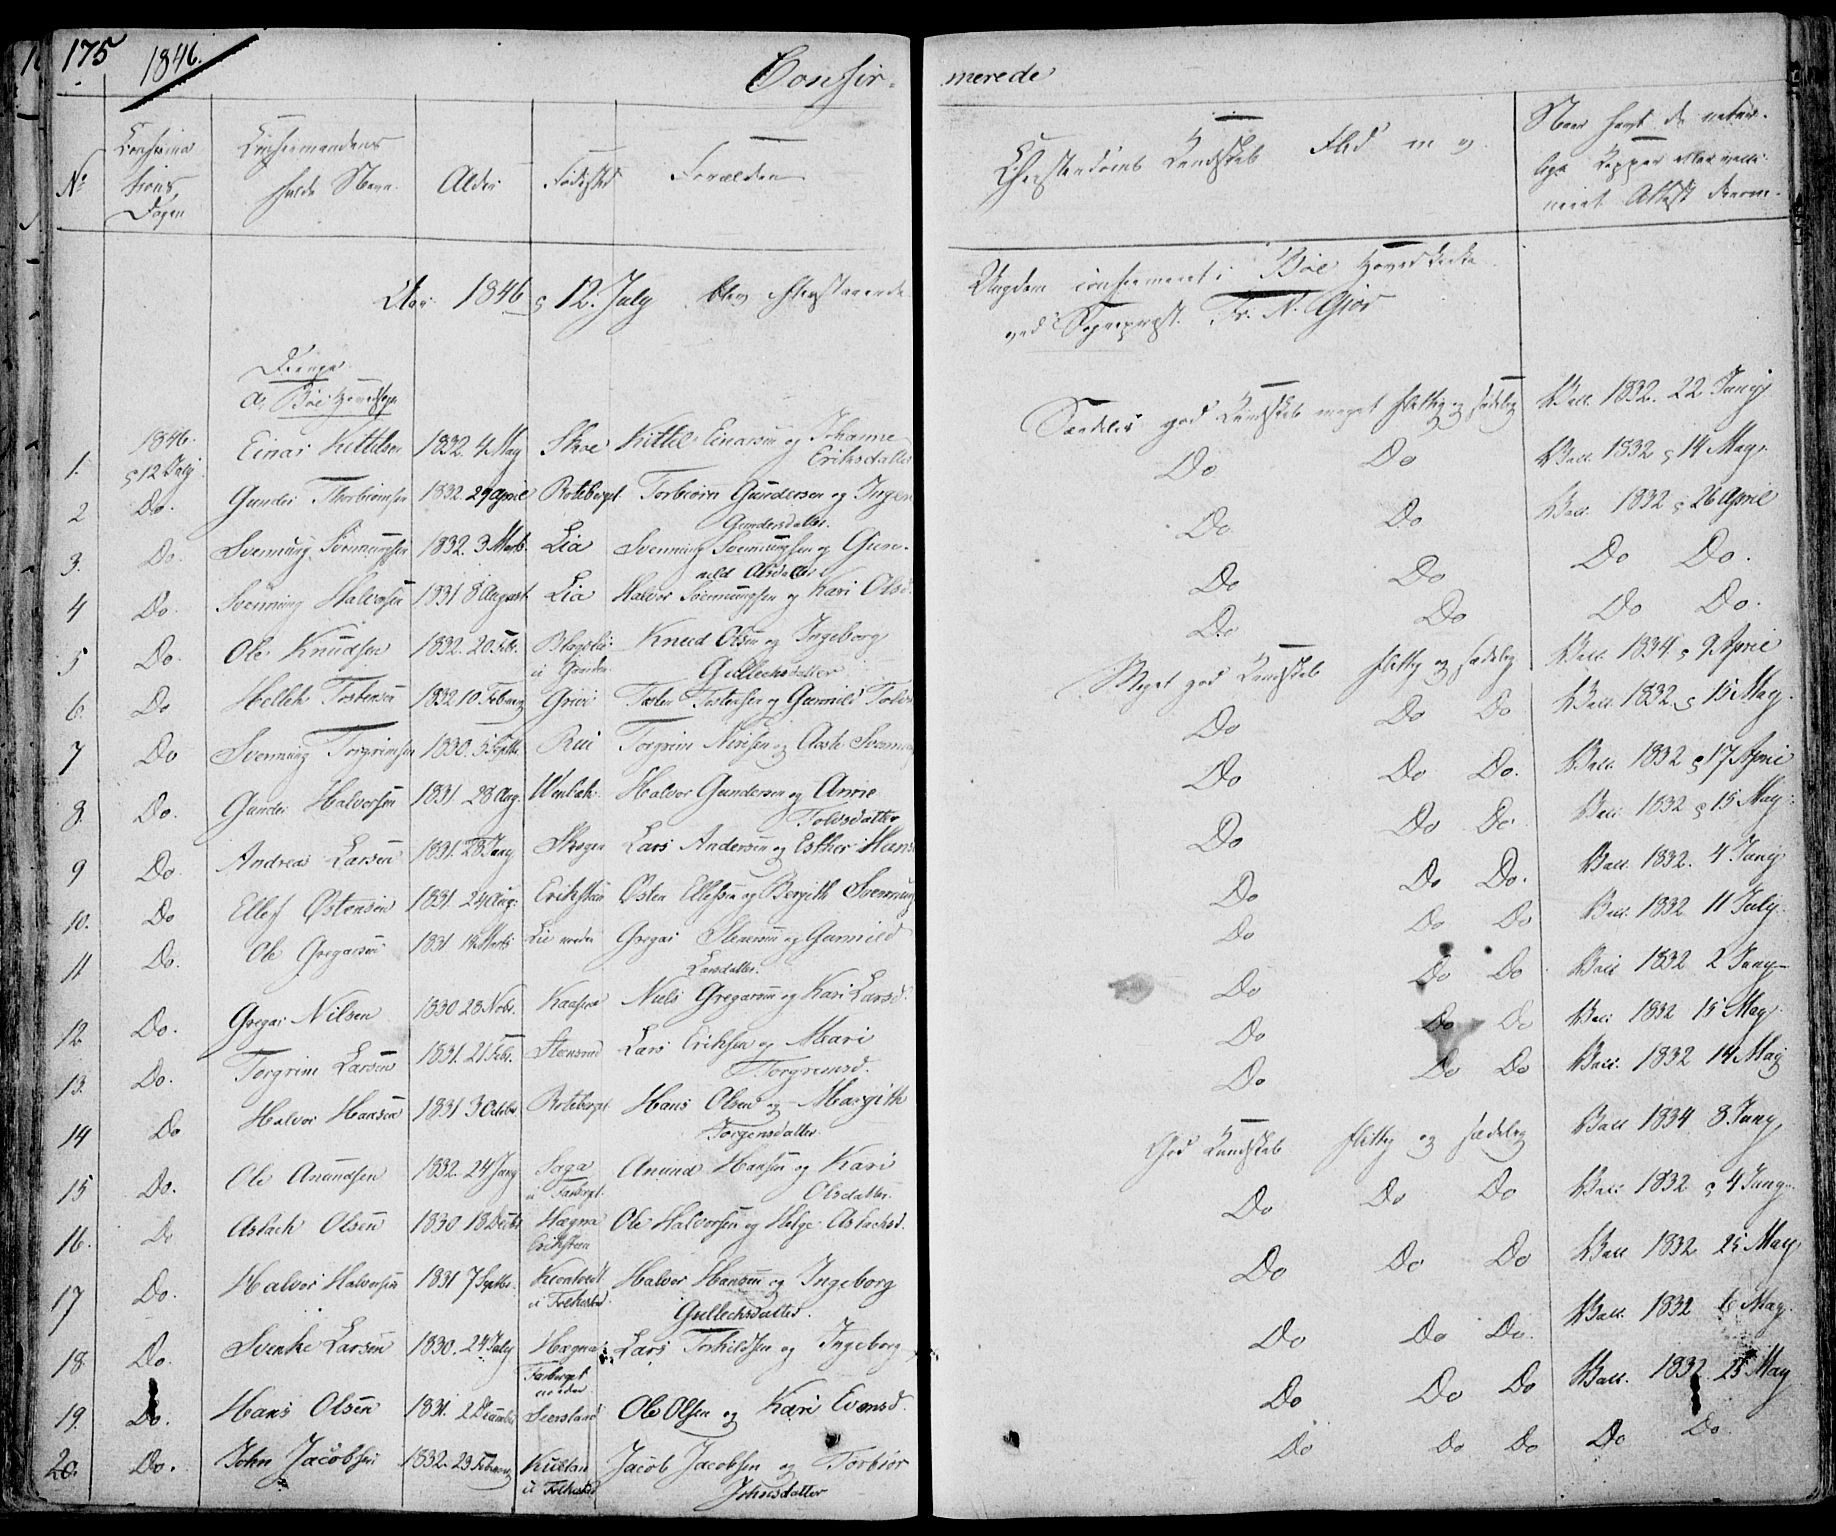 175 1846. Confir- merede
No Confirma tions Dagen Confirmandens fulde Navn. Alder Fødested Forældre Christendoms Kundskab Flid m v. Naar havt de natur-
lige Kopper eller vacci-
neret Attest derom.
Aar 1846 12. July blev efterstaaende Ungdom confirmeret i Bøe Hovedkirke
ved Sognepræst Fr. N. Gjør
Drenge
Af Bøe Hovedsogn
1. 1846. 12 July Einar Kittelsen 1832. 4 May Skoe Kittel Einarsen og Johanne Eriksdatter Særdeles god Kundskab meget flittig og sædelig Vacc. 1832. 22 Juny
2 Do. Gunder Thorbiørnsen 1832. 29 April Roteberget Torbiørn Gundersen og Ingen Gundersdatter. Do Do Vacc. 1832 14 May.
3. Do. Svennung Svennungsen 1832. 3 Marts. Lia Svennung Svennungsen og Gunnild Olsdatter Do Do Vacc. 1832 26 April
4 Do. Svennung Halvorsen 1831 8 August Lia Halvor Svennungsen og Kari Olsd. Do Do Do Do.
5 Do. Ole Knudsen 1832. 20 Febr. Knud Olsen og Ingeborg Gullechsdatter Do Do Do Do.
6. Do Hellek Tostensen 1832 10 Februar Grivi Tosten Tostensen og Gunnild Meget god Kundskab flittig og sædelig Vacc. 1834 9 April
7 Do Svennung Torgrimsen 1830. 5 Septbr. Rui Torgrim Nirisen og Aaste Do Do Do Vacc. 1832 15 May.
8. Do. Gunder Halvorsen 1831. 28 Aug. Wenbæk Halvor Gundersen og Anne Tolvsdatter Do Do Do. Vacc. 1832 17 April
9 Do. Andreas Larsen 1831. 28 Juny Skogen Lars Andersen og Esther Do Do Do Vacc. 1832 15 May.
10. Do Ellef Østensen 1831. 24 Aug. Erikstein Østen Ellefsen og Bergith Svennung Do Do Do. Vacc. 1832. 4 Juny
11 Do. Ole Gregarsen 1831 Marts Lie nedre Gregar Stenersen og Gunnild Larsdatter. Do Do Do Vacc. 1832 11 July.
12. Do. Gregar Nilsen 1830 28 Novbr. Kaasene Niels Gregarsen og Kari Larsd. Do Do Do Vacc 1832 2 Juny
13. Do. Torgrim Larsen 1831. 21 Febr. Stensrud Lars Eriksen og Mari Torgrimsd. Do Do Do Vacc 1832 15 May.
14 Do Halvor Hansen 1831 3 October Roteberget Hans Olsen og Margith Torgensdatter Do Do Do Vacc. 1832 14 May
15 Do. Ole Anundsen 1832. 24 Juny Haga u Farberget. Anund Hansen og Kari Olsdatter. God Kundskab flittig og sædelig Vacc 1834 8 Juny
16. Do Aslach Olsen 1830 18 Decbr Hægna Erikstein Ole Halvorsen og Helge Aslachsd. Do Do Do Vacc 1832 4 Juny
17 Do. Halvor Halvorsen 1831 7 Septbr. u Folkestad Halvor Hansen og Ingeborg Gullechsdatter. Do Do Do Vacc. 1832 25 May
18 Do. Svenke Larsen 1830. 24 July Hægna Farberget nedre Lars Torkildsen og Ingeborg Do Do Do. Vacc. 1832 6 May.
19. Do. Hans Olsen 1831. 2 December Seersland Ole Olsen og Kari Evensd. Do Do Do Vacc. 1832. 25 May
20. Do. John Jacobsen 1832. 23 Februar u Folkestad Jacob Jacobsen og Torbiør Johnsdatter Do Do Do Do Do.